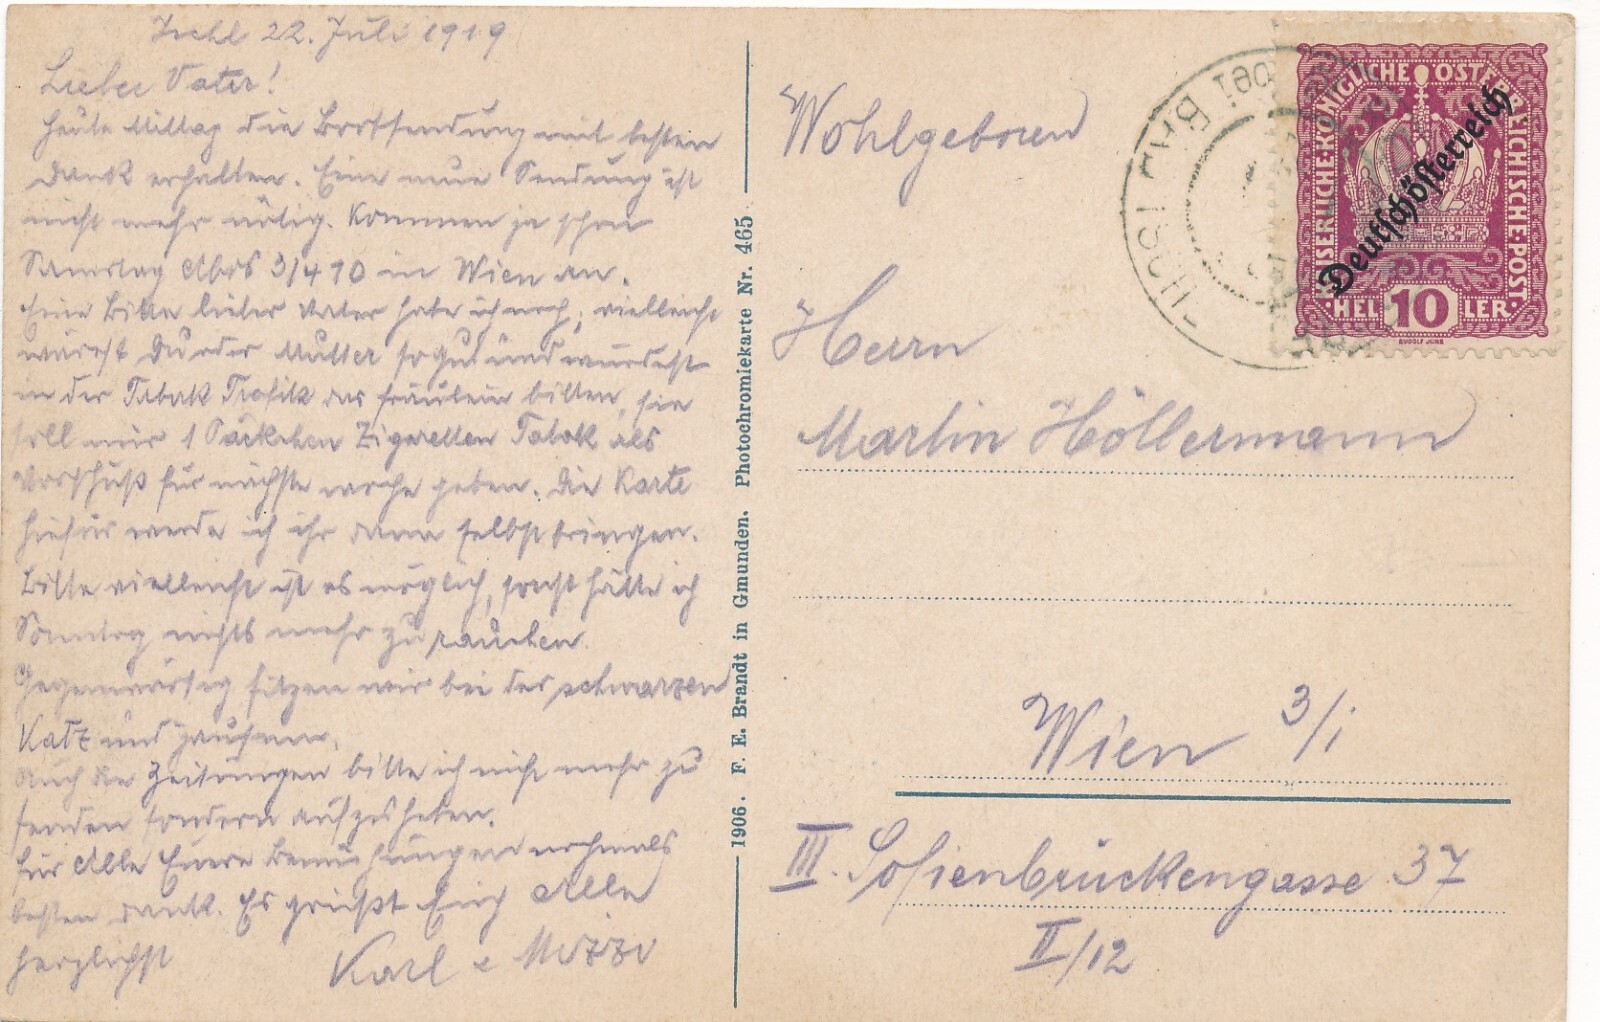 Ischl 22. Juli 1919
Lieber Vater!
Heute Mittag die Brotsendung mit besten
Dank erhalten. Eine neue Sendung ist
nicht mehr nötig. Kommen ja schon
Samstag Abds 3/4 10 in Wien an.
Eine Bitte lieber Vater habe ich noch; vielleicht
wärest Du oder Mutter so gut und würdest
in der Tabak Trafik das Fräulein bitten, sie
soll mir 1 Päckchen Zigaretten Tabak als
Vorschuß für nächste Woche geben. Die Karte
hiefür werde ich ihr dann selbst bringen.
Bitte vielleicht ist es möglich, sonst hätte ich
Sonntag nichts mehr zu rauchen.
Gegenwärtig sitzen wir bei der schwarzen
Katz und jausnen.
Auch die Zeitungen bitte ich nicht mehr zu
senden sondern aufzuheben.
Für Alle Euere Bemühungen nochmals
besten Dank. Es grüßt Euch Alle
herzlichst
Karl u Mizzi
1906. F. E. Brandt in Gmunden. Photochromiekarte Nr. 465
BAD ISCHL
KAISERLICHE·KÖNIGLICHE ÖSTERREICHISCHE·POST
Deutschösterreich
HEL 10 LER
RUDOLF JUNK
Wohlgeboren
Herrn
Martin Höllermann
Wien 3/1
III. Sofienbrückengasse 37
II/12